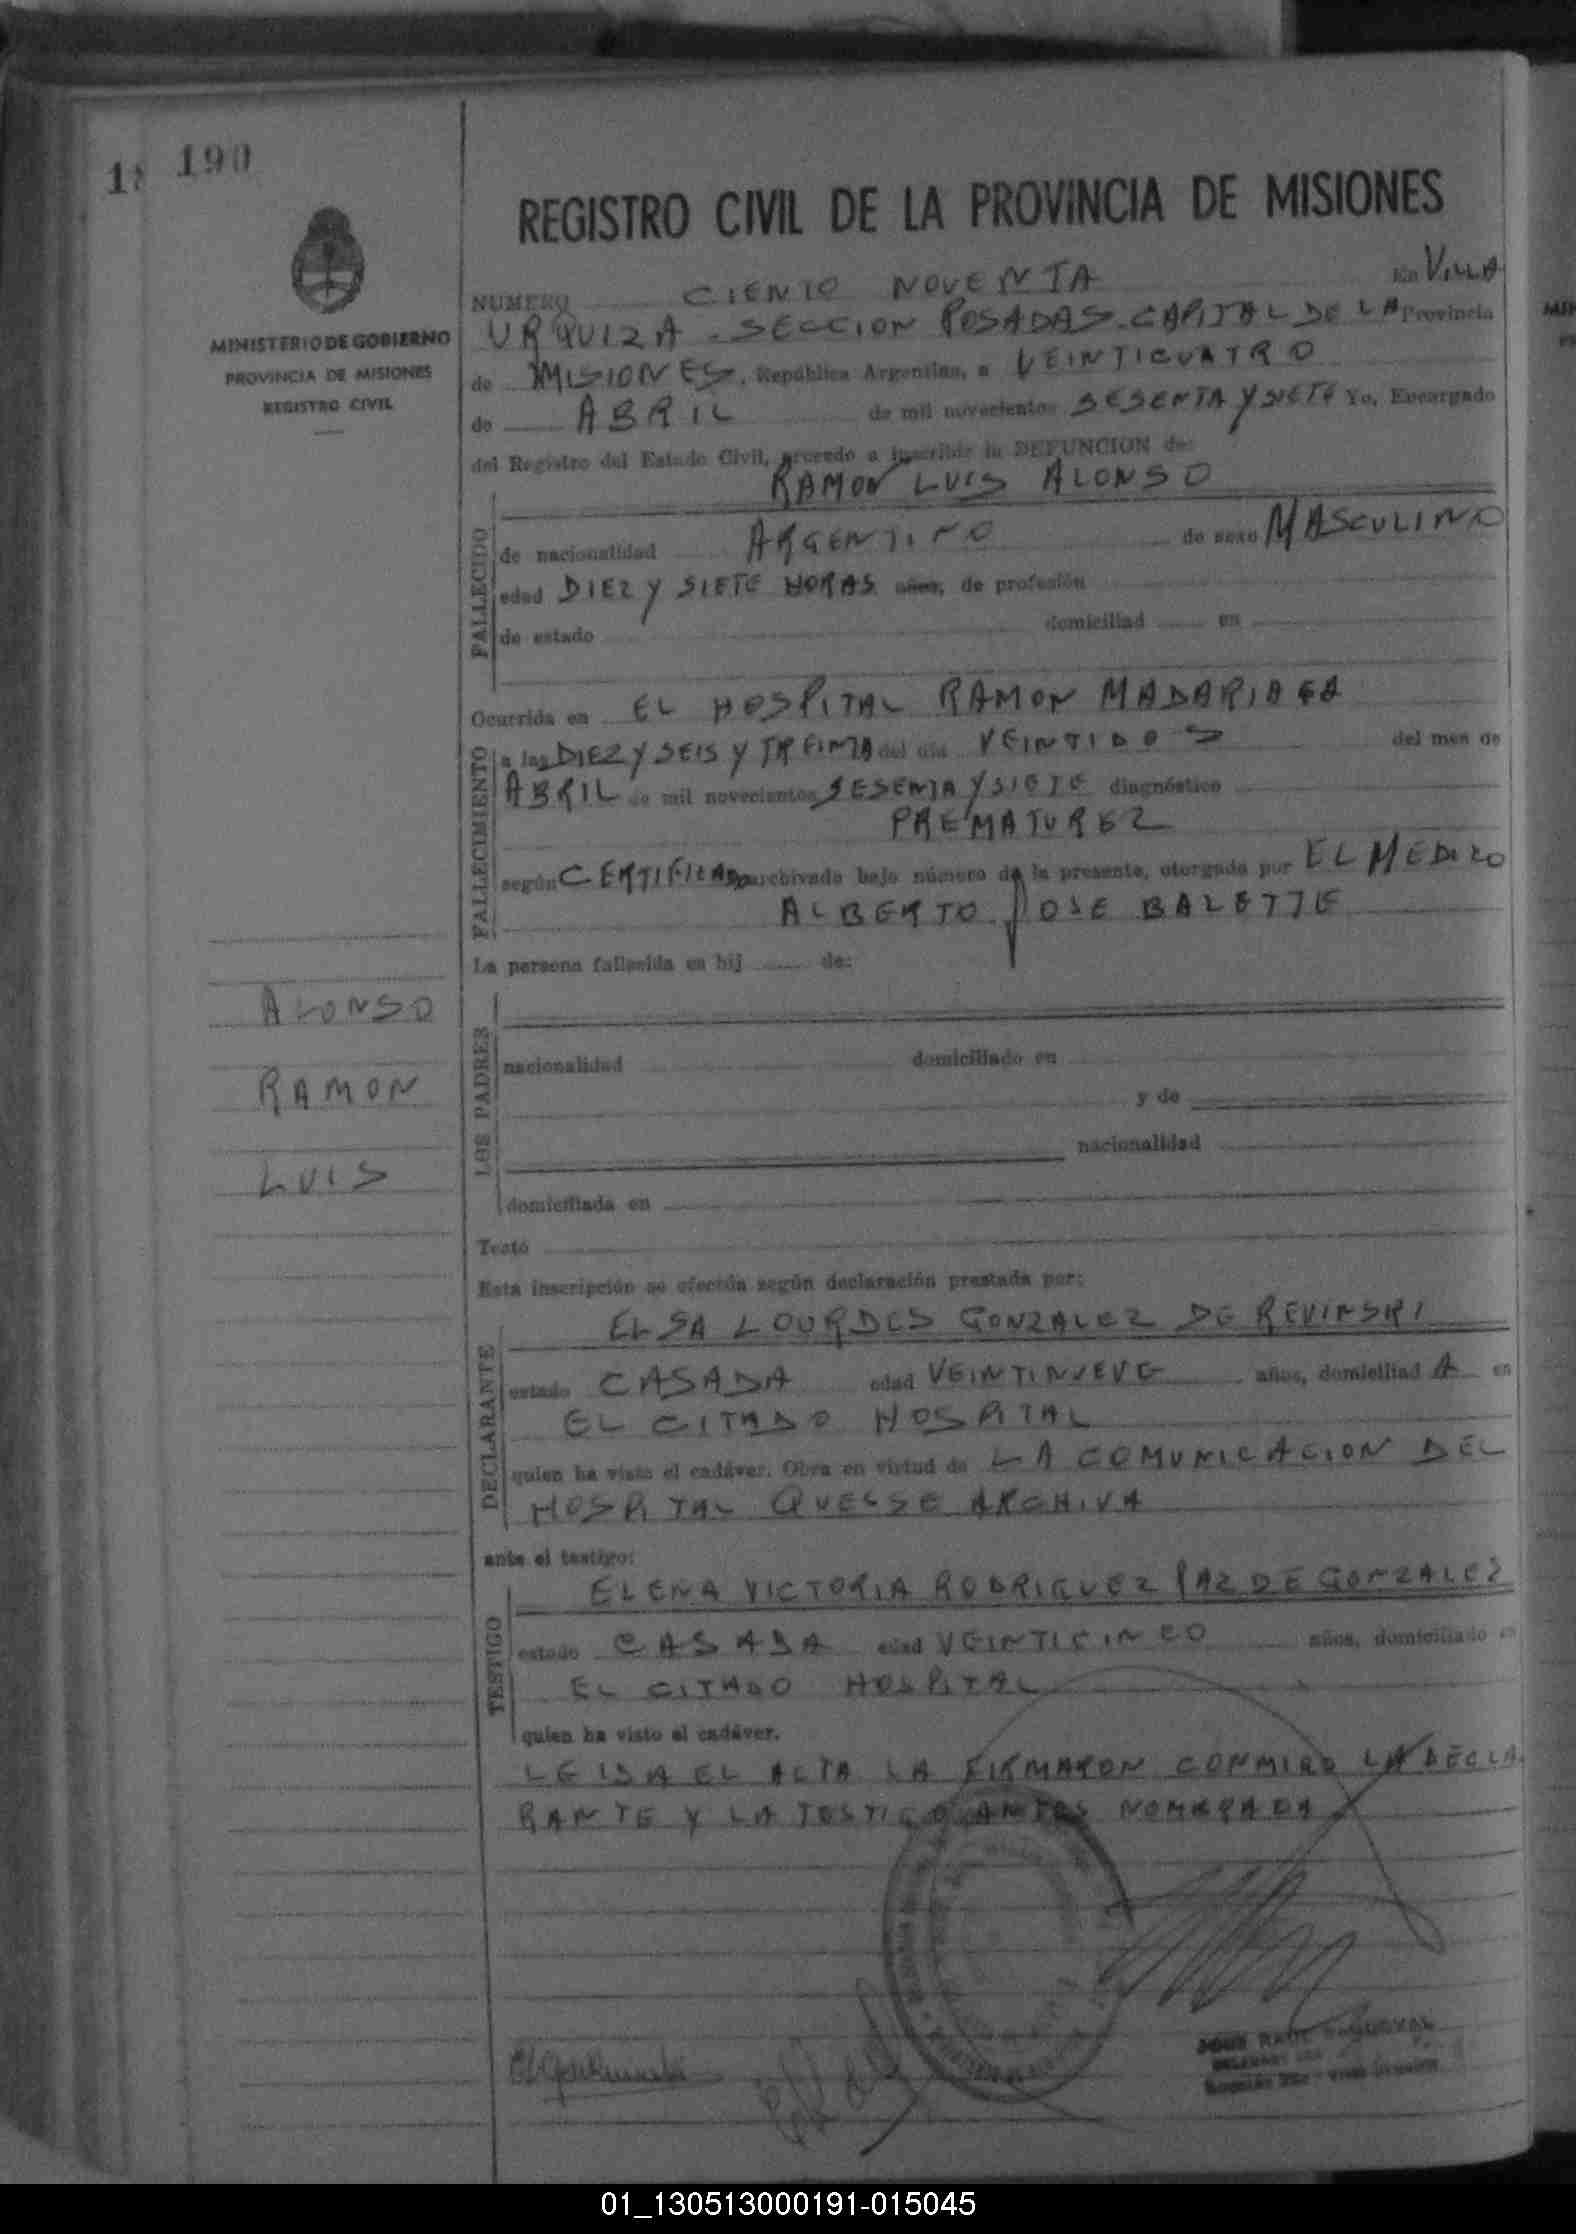 190
MINISTERIO DE GOBIERNO
PROVINCIA DE MISIONES
REGISTRO CIVIL
REGISTRO CIVIL DE LA PROVINCIA DE MISIONES
NUMERO CIENTO NOVENTA En VILLA
URQUIZA - SECCION POSADAS - CAPITAL DE LA Provincia
de MISIONES, República Argentina, a VEINTICUATRO
de ABRIL de mil novecientos SESENTA Y SIETE Yo, Encargado
del Registro del Estado Civil, procedo a inscribir la DEFUNCION de:
RAMON LUIS ALONSO
FALLECIDO
de nacionalidad ARGENTINO de sexo MASCULINO
edad DIEZ Y SIETE HORAS años, de profesión
de estado domiciliad en
Ocurrida en EL HOSPITAL RAMON MADARIAGA
FALLECIMIENTO
a las DIEZ Y SEIS Y TREINTA del día VEINTIDOS del mes de
ABRIL de mil novecientos SESENTA Y SIETE diagnóstico
PREMATUREZ
según CERTIFICADO archivado bajo número de la presente, otorgado por EL MEDICO
ALBERTO JOSE BALETTE
La persona fallecida es hij de:
LOS PADRES
nacionalidad domiciliado en
y de
nacionalidad
domiciliada en
Testó
ALONSO
RAMON
LUIS
Esta inscripción se efectúa según declaración prestada por:
ELSA LOURDES GONZALEZ DE REVINSKI
DECLARANTE
estado CASADA edad VEINTINUEVE años, domiciliad A en
EL CITADO HOSPITAL
quien ha visto el cadáver. Obra en virtud de LA COMUNICACION DEL
HOSPITAL QUE SE ARCHIVA
ante el testigo:
ELENA VICTORIA RODRIGUEZ PAZ DE GONZALEZ
TESTIGO
estado CASADA edad VEINTICINCO años, domiciliado en
EL CITADO HOSPITAL
quien ha visto el cadáver.
LEIDA EL ACTA LA FIRMARON CONMIGO LA DECLA
RANTE Y LA TESTIGO ANTES NOMBRADA
JOSE RAUL SANDOVAL
01_130513000191-015045